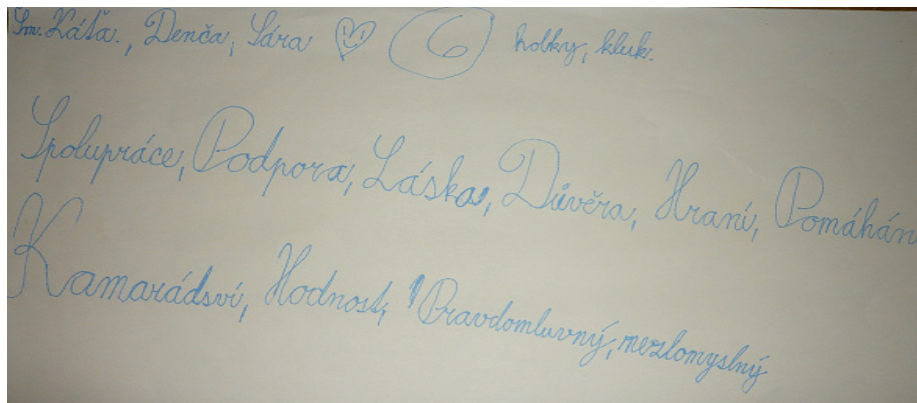 Sm. Káťa., Denča, Sára 6 holky, kluk.
Spolupráce, Podpora, Láska, Důvěra, Hraní, Pomáhán
Kamarádsví, Hodnost, Pravdomluvný, nezlomyslný